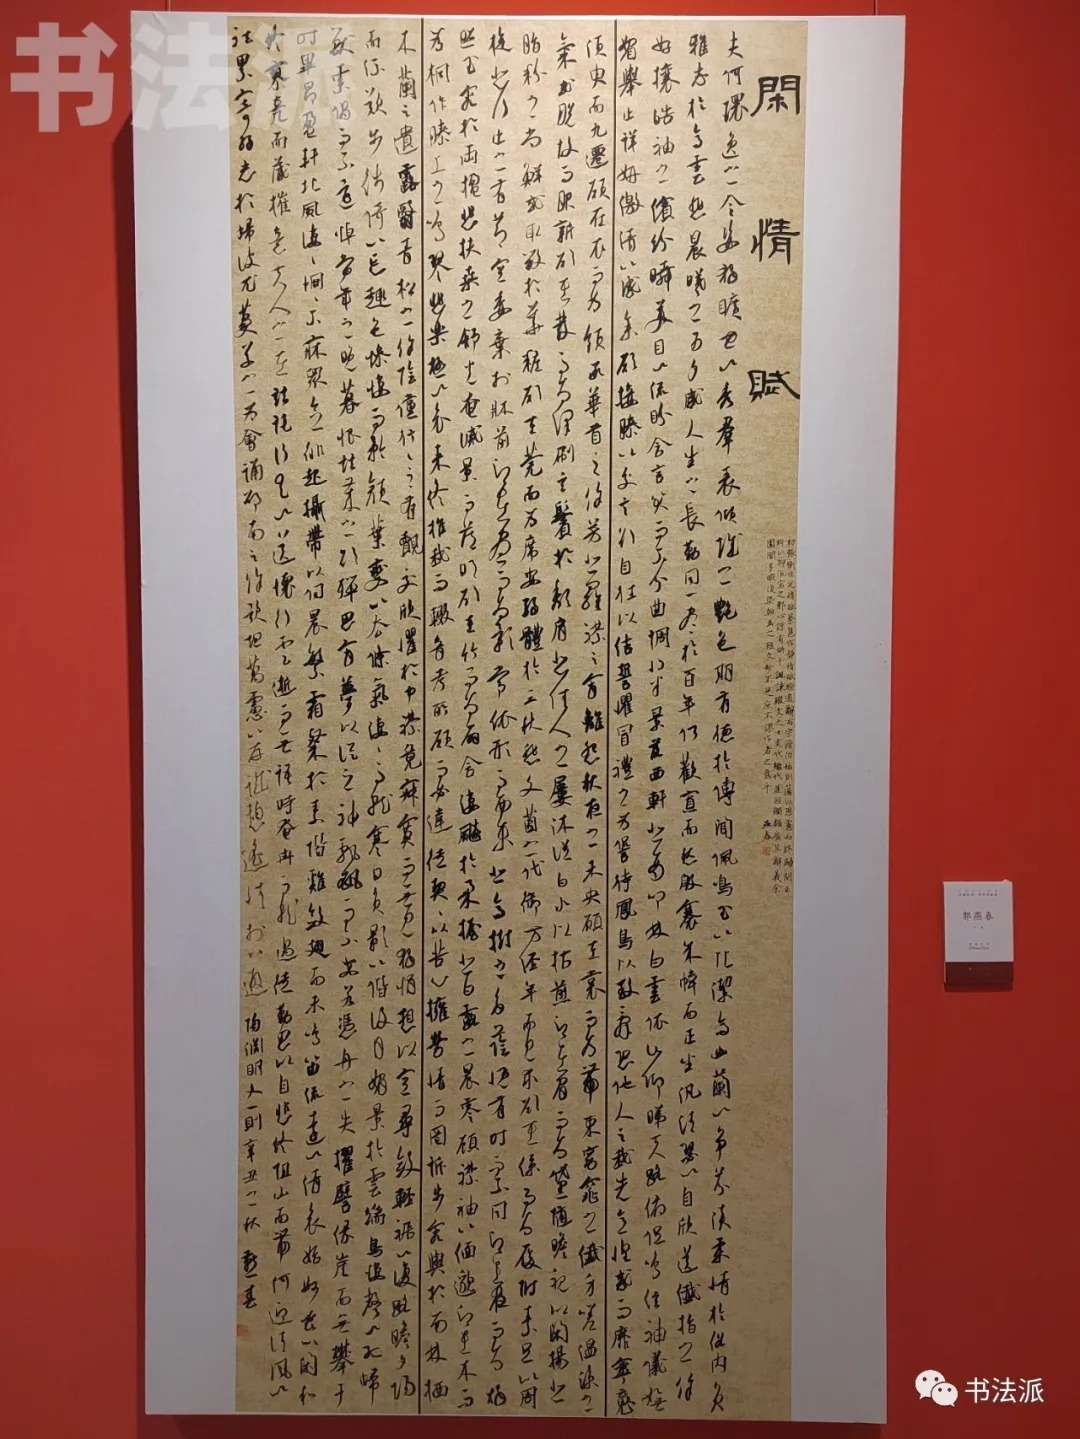 閑情賦
初張衡作定情賦蔡邕作靜情賦檢逸辭而宗澹泊始則蕩以思慮而終歸閑正
將以抑流宕之邪心諒有助于諷諫綴文之士奕代繼作並因觸類廣其辭義余
園閭多暇復染翰為之雖文妙不足庶不謬作者之意乎 燕春
夫何瓌逸之令姿獨曠世以秀群表傾城之艷色期有德於傳聞佩鳴玉以比潔齊幽蘭以爭芬淡柔情於俗內負
雅志於高雲悲晨曦之易夕感人生之長勤同一盡於百年何歡寡而愁殷褰朱幃而正坐汎清瑟以自欣送纖指之餘
好攘皓袖之繽紛瞬美目以流眄含言笑而不分曲調將半景落西軒悲商叩林白雲依山仰睇天路俯促鳴絃神儀嫵
媚舉止詳妍激清音以感余願接膝以交言欲自往以結誓懼冒禮之為諐待鳳鳥以致辭恐他人之我先意惶惑而靡寧魂
須臾而九遷願在衣而為領承華首之餘芳悲羅襟之宵離怨秋夜之未央願在裳而為帶束窈窕之纖身嗟溫涼之異
氣或脫故而服新願在髮而為澤刷玄鬢於頹肩悲佳人之屢沐從白水以枯煎願在眉而為黛隨瞻視以閑揚悲
脂粉之尚鮮或取毀於華粧願在莞而為席安弱體於三秋悲文茵之代御方經年而見求願在絲而為履附素足以周
旋悲行止之有節空委棄於牀前願在晝而為影常依形而西東悲高樹之多蔭慨有時而不同願在夜而為燭
照玉容於兩楹悲扶桑之舒光奄滅景而藏明願在竹而為扇含淒飆於柔握悲白露之晨零顧襟袖以緬邈願在木而
為桐作膝上之鳴琴悲樂極以哀來終推我而輟音考所願而必違徒契契以苦心擁勞情而罔訴步容與於南林棲
木蘭之遺露翳青松之餘陰儻行行之有覿交欣懼於中襟竟寂寞而無見獨悁想以空尋斂輕裾以復路瞻夕陽
而流歎步徙倚以忘趣色慘悽而矜顏葉燮燮以去條氣淒淒而就寒日負影以偕沒月媚景於雲端鳥悽聲以孤歸
獸索偶而不還悼當年之晚暮恨茲歲之欲殫思宵夢以從之神飄颻而不安若憑舟之失櫂譬緣崖而無攀于
時畢昴盈軒北風淒淒恫恫不寐眾念徘徊起攝帶以伺晨繁霜粲於素階雞斂翅而未鳴笛流遠以清哀始妙密以閑和
終寥亮而藏摧意夫人之在茲託行雲以送懷行雲逝而無語時奄冉而就過徒勤思以自悲終阻山而帶河迎清風以
祛累寄弱志於歸波尤蔓草之為會誦邵南之餘歌坦萬慮以存誠憩遙情於八遐 陶淵明文一則辛丑之秋 燕春
郭燕春
书法派
书法派